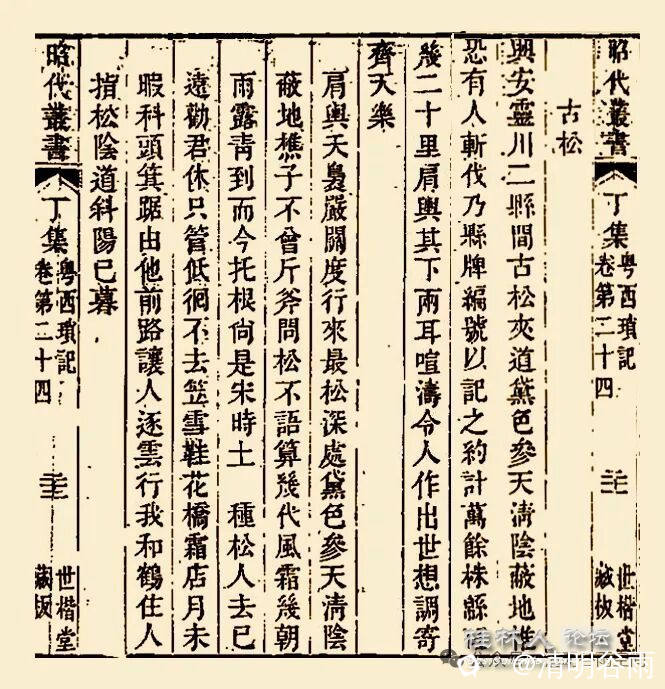 昭代叢書
丁集
粵西瑣記
卷第二十四
世楷堂
藏板
古松
興安靈川二縣間古松夾道黛色參天淸陰蔽地惟
恐有人斬伐乃縣牌編號以記之約計萬餘株緜
幾二十里肩輿其下兩耳喧濤令人作出世想調寄
齊天樂
肩輿天裊嚴關度行來最松深處黛色參天淸陰
蔽地樵子不曾斤斧問松不語算幾代風霜幾朝
雨露靑到而今托根尙是宋時土　種松人去已
遠勸君休只管低徊不去笠雪鞋花橋霜店月未
暇科頭箕踞由他前路讓人逐雲行我和鶴住人
指松陰道斜陽已暮
昭代叢書
丁集
粵西瑣記
卷第二十四
世楷堂
藏板
桂林人论坛
@清明谷雨